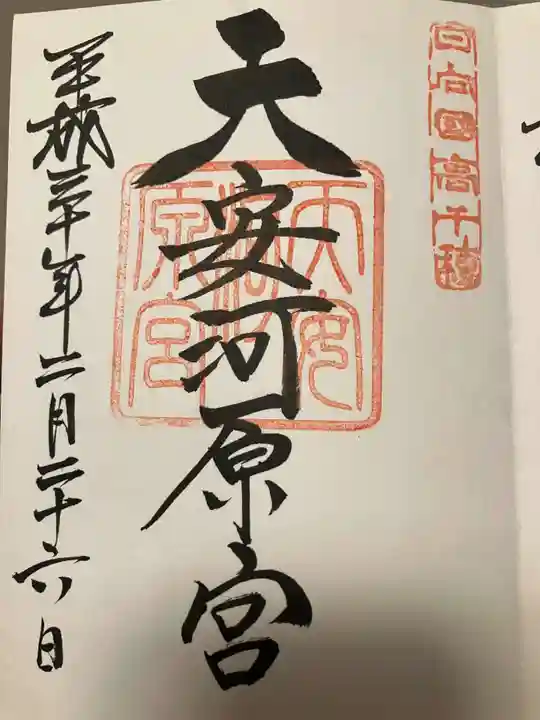 日向国高千穂
天安河原宮
天安河原宮
平成三十年二月二十六日